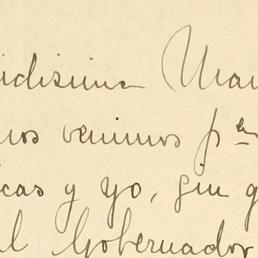 idisima Mam
nos venimos pen
icas y yo, sin q
al Gobernador